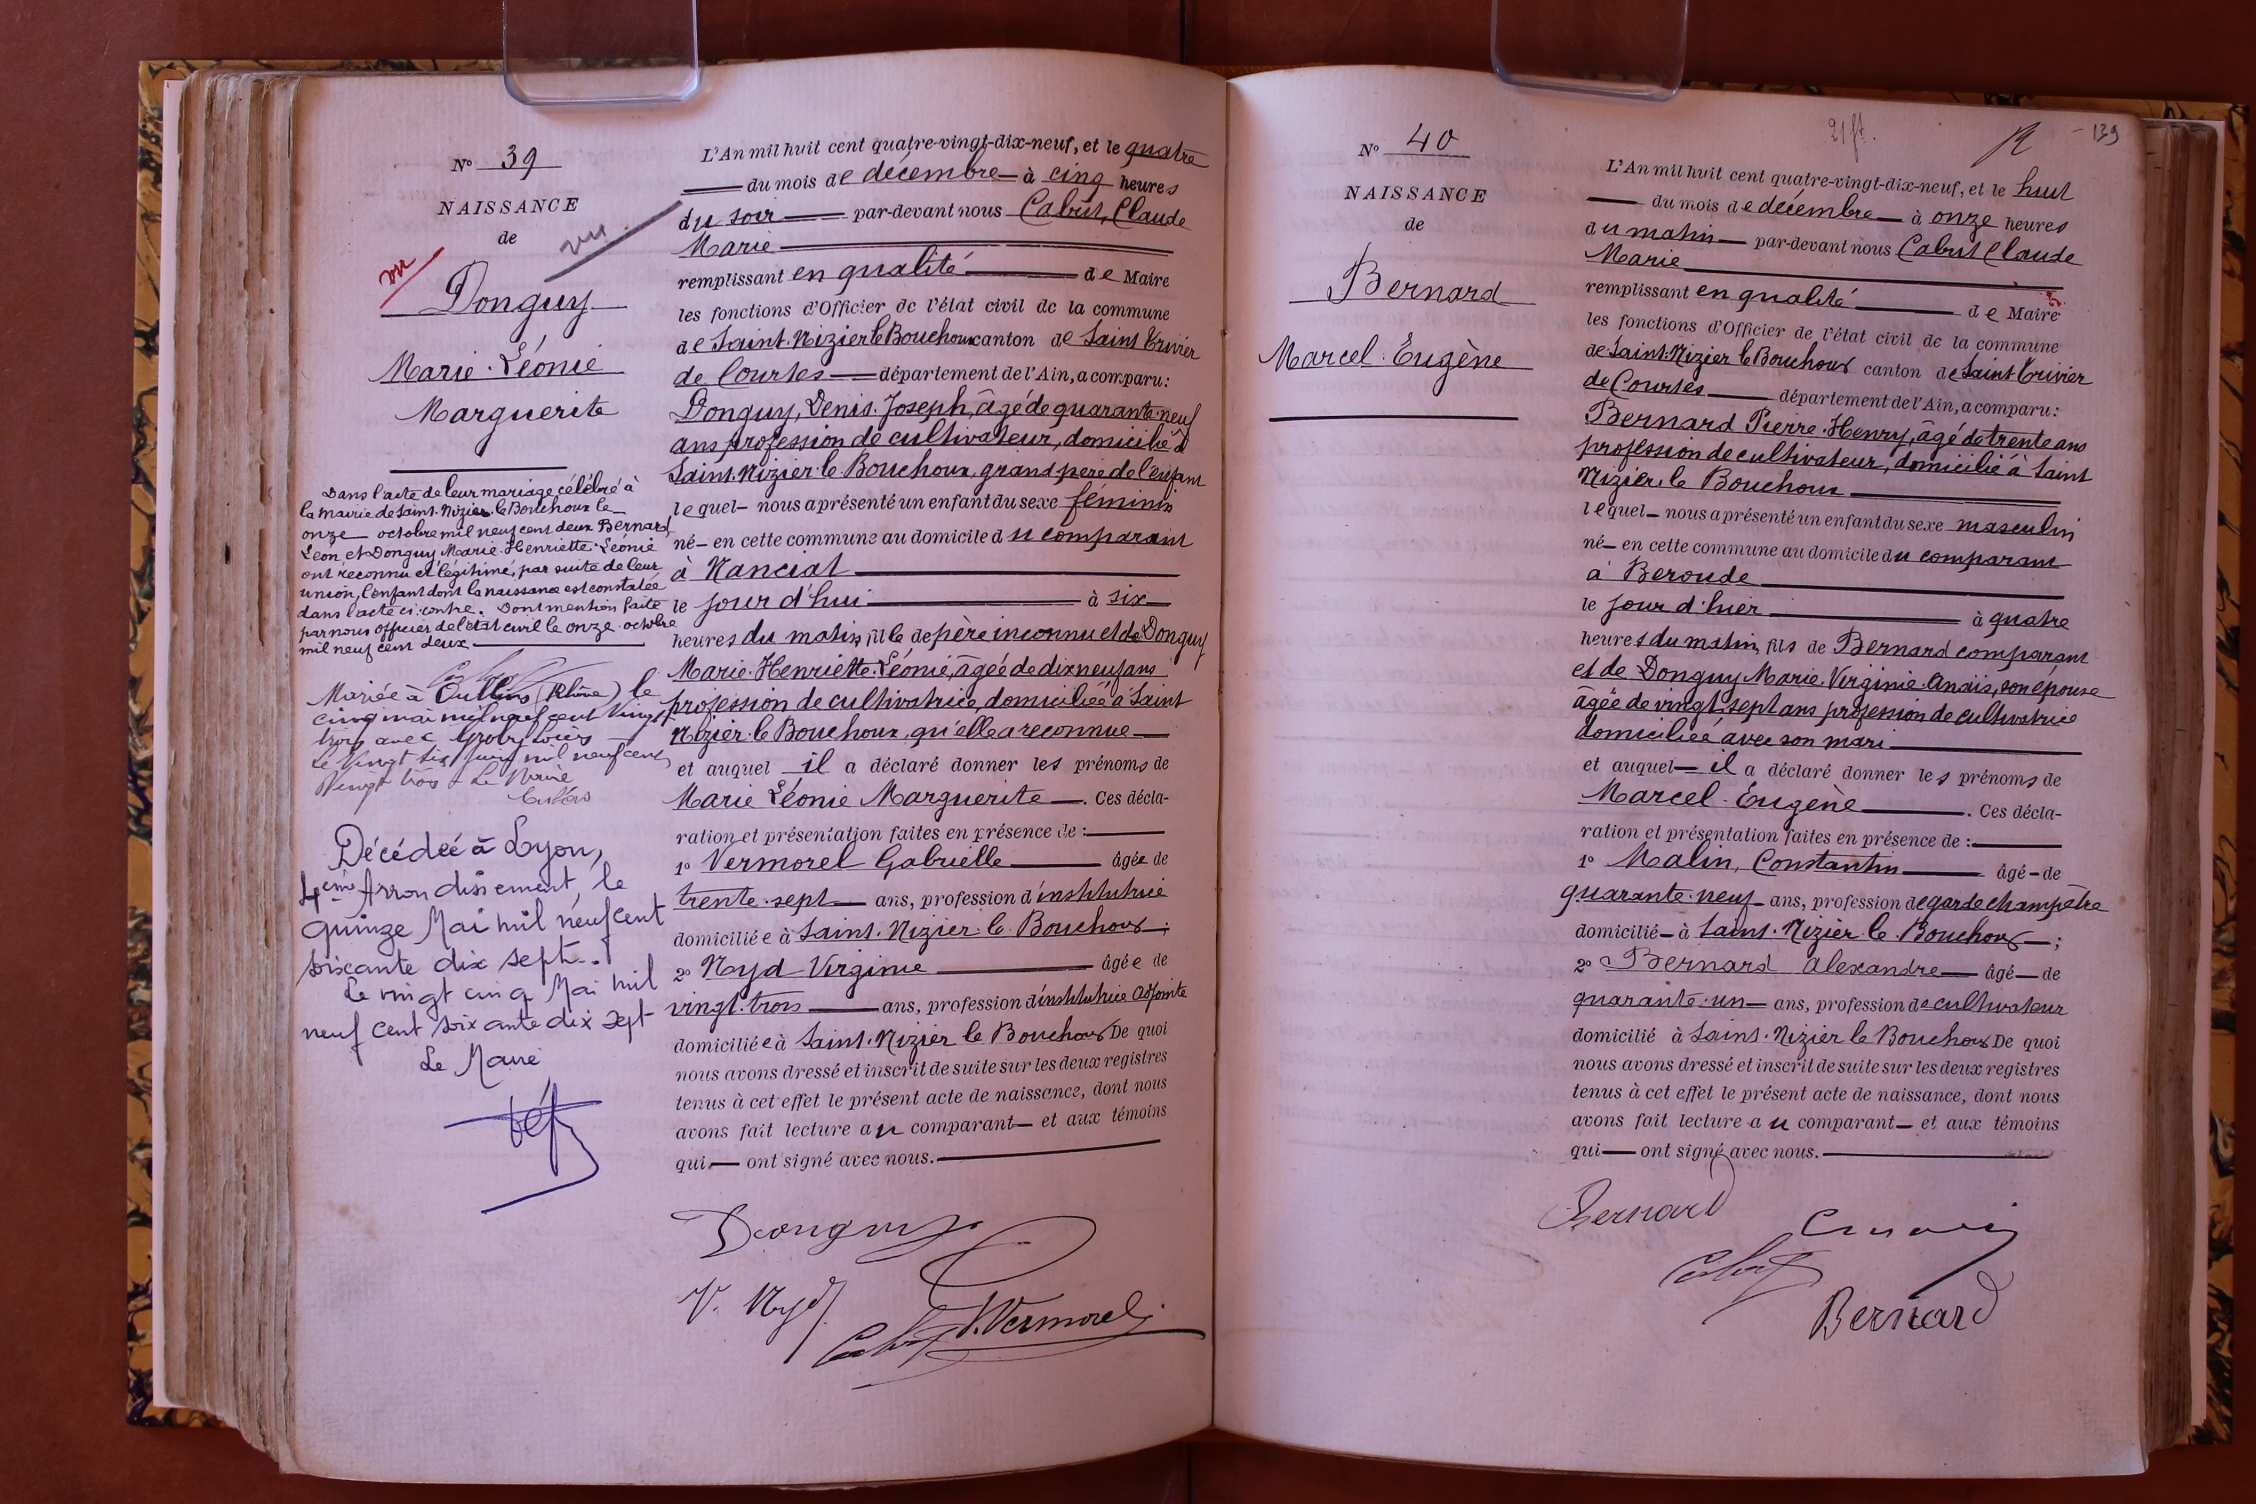 N° 39
NAISSANCE
de
vu
vu
Donguy
Marie Léonie
Marguerite
Dans l'acte de leur mariage célébré à
la mairie de Saint-Nizier-le-Bouchoux le
onze octobre mil neuf cent deux Bernard
Léon et Donguy Marie-Henriette-Léonie
ont reconnu et légitimé, par suite de leur
union, l'enfant dont la naissance est constatée
dans l'acte ci-contre. Dont mention faite
par nous officier de l'état civil le onze octobre
mil neuf cent deux
Mariée à Oullins (Rhône) le
cinq mai mil neuf cent vingt
trois avec
Le vingt six juin mil neuf cent
vingt trois Le Maire
Décédée à Lyon,
4ème Arrondissement, le
quinze Mai mil neuf cent
soixante dix sept.
Le vingt cinq Mai mil
neuf cent soixante dix sept
Le Maire
L'An mil huit cent quatre-vingt-dix-neuf, et le quatre
du mois de décembre à cinq heures
du soir par-devant nous Cabut, Claude
Marie
remplissant en qualité de Maire
les fonctions d'Officier de l'état civil de la commune
de Saint-Nizier le Bouchoux canton de Saint Trivier
de Courtes département de l'Ain, a comparu:
Donguy, Denis-Joseph, âgé de quarante-neuf
ans, profession de cultivateur, domicilié à
Saint-Nizier-le-Bouchoux, grand père de l'enfant
lequel nous a présenté un enfant du sexe féminin
né en cette commune au domicile du comparant
à Nanciat
le jour d'hui à six
heures du matin, fille de père inconnu et de Donguy
Marie-Henriette-Léonie, âgée de dix neuf ans
profession de cultivatrice, domiciliée à Saint
Nizier-le-Bouchoux, qu'elle a reconnue
et auquel il a déclaré donner les prénoms de
Marie Léonie Marguerite. Ces décla-
ration et présentation faites en présence de :
1° Vermorel Gabrielle âgée de
trente-sept ans, profession d'institutrice
domiciliée à Saint-Nizier-le-Bouchoux ;
2° Nyd Virginie âgée de
vingt-trois ans, profession d'institutrice adjointe
domiciliée à Saint-Nizier le Bouchoux De quoi
nous avons dressé et inscrit de suite sur les deux registres
tenus à cet effet le présent acte de naissance, dont nous
avons fait lecture au comparant et aux témoins
qui ont signé avec nous.
Donguy
V. Nyd
Cabut Vermorel
N° 40
NAISSANCE
de
Bernard
Marcel-Eugène
139
L'An mil huit cent quatre-vingt-dix-neuf, et le huit
du mois de décembre à onze heures
du matin par-devant nous Cabut Claude
Marie
remplissant en qualité de Maire
les fonctions d'Officier de l'état civil de la commune
de Saint-Nizier le Bouchoux canton de Saint Trivier
de Courtes département de l'Ain, a comparu:
Bernard Pierre-Henry, âgé de trente ans
profession de cultivateur, domicilié à Saint
Nizier-le Bouchoux
lequel nous a présenté un enfant du sexe masculin
né en cette commune au domicile du comparant
à Beroude
le jour d'hier à quatre
heures du matin, fils de Bernard comparant
et de Donguy Marie-Virginie-Anaïs, son épouse
âgée de vingt-sept ans profession de cultivatrice
domiciliée avec son mari
et auquel il a déclaré donner les prénoms de
Marcel-Eugène. Ces décla-
ration et présentation faites en présence de :
1° Malin, Constantin âgé de
quarante-neuf ans, profession de garde champêtre
domicilié à Saint-Nizier-le-Bouchoux ;
2° Bernard Alexandre âgé de
quarante-un ans, profession de cultivateur
domicilié à Saint-Nizier le Bouchoux De quoi
nous avons dressé et inscrit de suite sur les deux registres
tenus à cet effet le présent acte de naissance, dont nous
avons fait lecture au comparant et aux témoins
qui ont signé avec nous.
Bernard
Cabut
Bernard